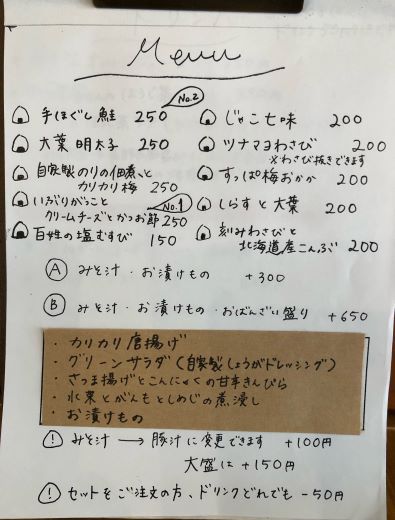 Menu
No.2
手ほぐし鮭 250
大葉明太子 250
自家製のりの佃煮と
カリカリ梅 250
No.1
いぶりがっこと
クリームチーズとかつお節 250
百姓の塩むすび 150
じゃこ七味 200
ツナマヨわさび 200
※わさび抜きできます
すっぱ梅おかか 200
しらすと大葉 200
刻みわさびと
北海道産こんぶ 200
A みそ汁・お漬けもの +300
B みそ汁・お漬けもの・おばんざい盛り +650
・カリカリ唐揚げ
・グリーンサラダ(自家製しょうがドレッシング)
・さつま揚げとこんにゃくの甘辛きんぴら
・水菜とがんもとしめじの煮浸し
・お漬けもの
! みそ汁 → 豚汁に変更できます +100円
大盛は +150円
! セットをご注文の方、ドリンクどれでも -50円